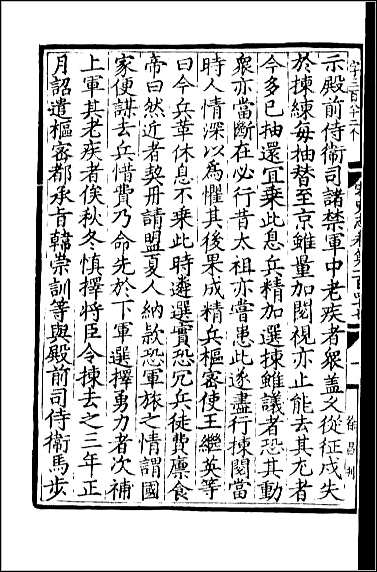 示殿前侍衞司諸禁軍中老疾者衆盖久從征戍失
於揀練每抽替至京雖量加閱視亦止能去其尤者
今多已抽還宜乗此息兵精加選揀雖議者恐其動
衆亦當斷在必行昔太祖亦嘗患此遂盡行揀閱當
時人情深以爲懼其後果成精兵樞密使王繼英等
曰今兵革休息不乗此時遴選實恐冗兵徒費廩食
帝曰然近者契丹請盟夏人納款恐軍旅之情謂國
家便謀去兵惜費乃命先於下軍選擇勇力者次補
上軍其老疾者俟秋冬慎擇將臣令揀去之三年正
月詔遣樞密都承㫖韓崇訓等與殿前司侍衞馬步